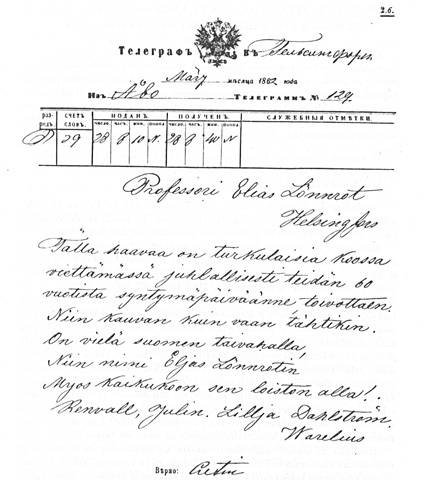 2.6.
Телеграфъ въ Гельсингфорсѣ
Märj мѣсяца 1862 года
Изъ Åbo Телеграммъ № 129.
раз-рядъ. СЧЕТЪ СЛОВЪ. ПОДАНЪ. ПОЛУЧЕН. СЛУЖЕБНЫЯ ОТМѢТКИ.
число. часъ. мин. число. часъ. мин.
39 28 8 10 N. 28 8 40 N
Professori Elias Lönnrot
Helsingfors
Tällä haavaa on turkulaisia koossa
viettämässä juhlallisesti teidän 60
vuotista syntymäpäiväänne toivottaen.
Niin kauvan kuin vaan tähtikin.
On vielä suomen taivahalla,
Niin nimi Eljas Lönnrotin
Myos kaikukoon sen loiston alla!.
Renvall, Julin. Lillja Dahlström.
Warelius
Вѣрно: